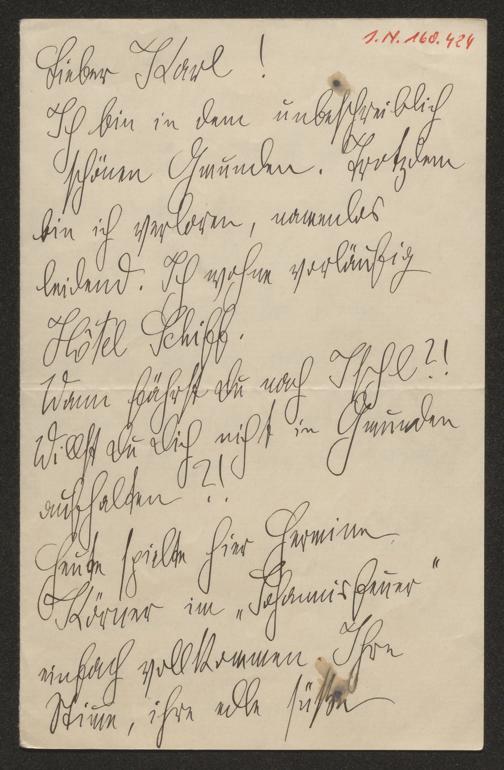 J.N. 160.424
Lieber Karl!
Ich bin in dem unbeschreiblich
schönen Gmunden. Trotzdem
bin ich verloren, namenlos
leidend. Ich wohne vorläufig
Hôtel Schiff.
Wann fährst Du nach Ischl?!
Willst Du Dich nicht in Gmunden
aufhalten?!
Heute spielte hier Hermine
Körner im „Johannisfeuer“
einfach vollkommen. Ihre
Stimme, ihre edle süsse